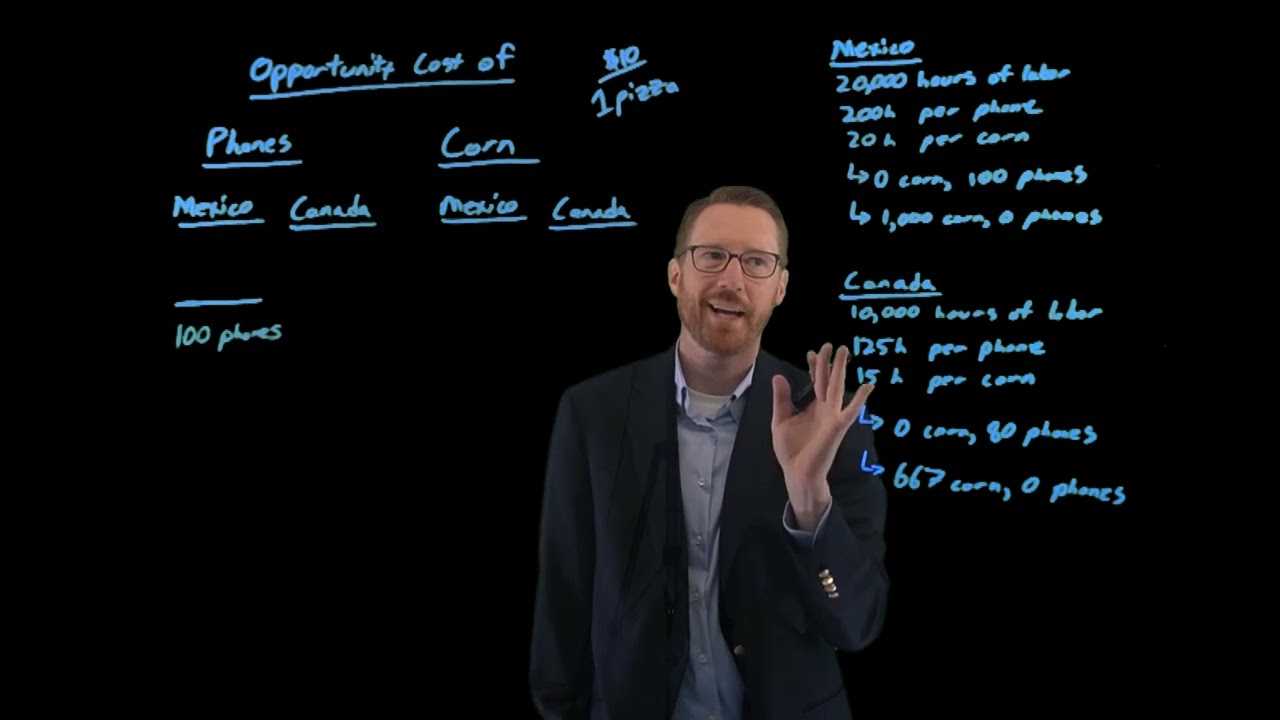 Opportunity Cost of
$10
1 pizza
Phones
Corn
Mexico
Canada
Mexico
Canada
100 phones
Mexico
20,000 hours of labor
200h per phone
20h per corn
↳ 0 corn, 100 phones
↳ 1,000 corn, 0 phones
Canada
10,000 hours of labor
125h per phone
15h per corn
↳ 0 corn, 80 phones
↳ 667 corn, 0 phones